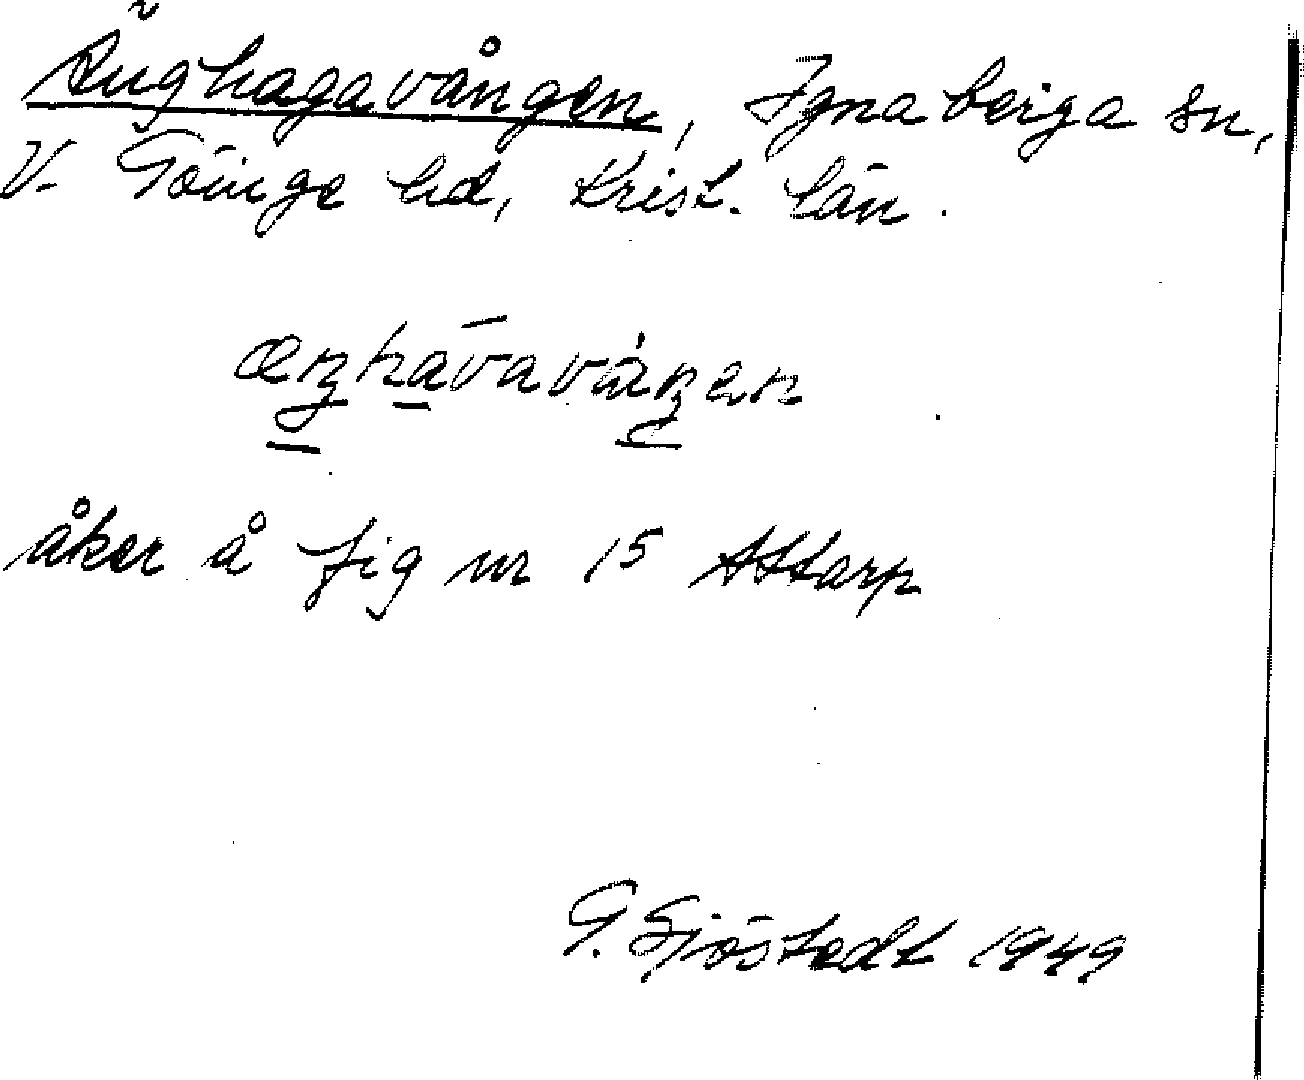 Änghagavången, Ignaberga sn,
V. Göinge hd, Krist. län.
æŋhavavåŋen
åker å fig nr 15 Attarp
G. Sjöstedt 1949